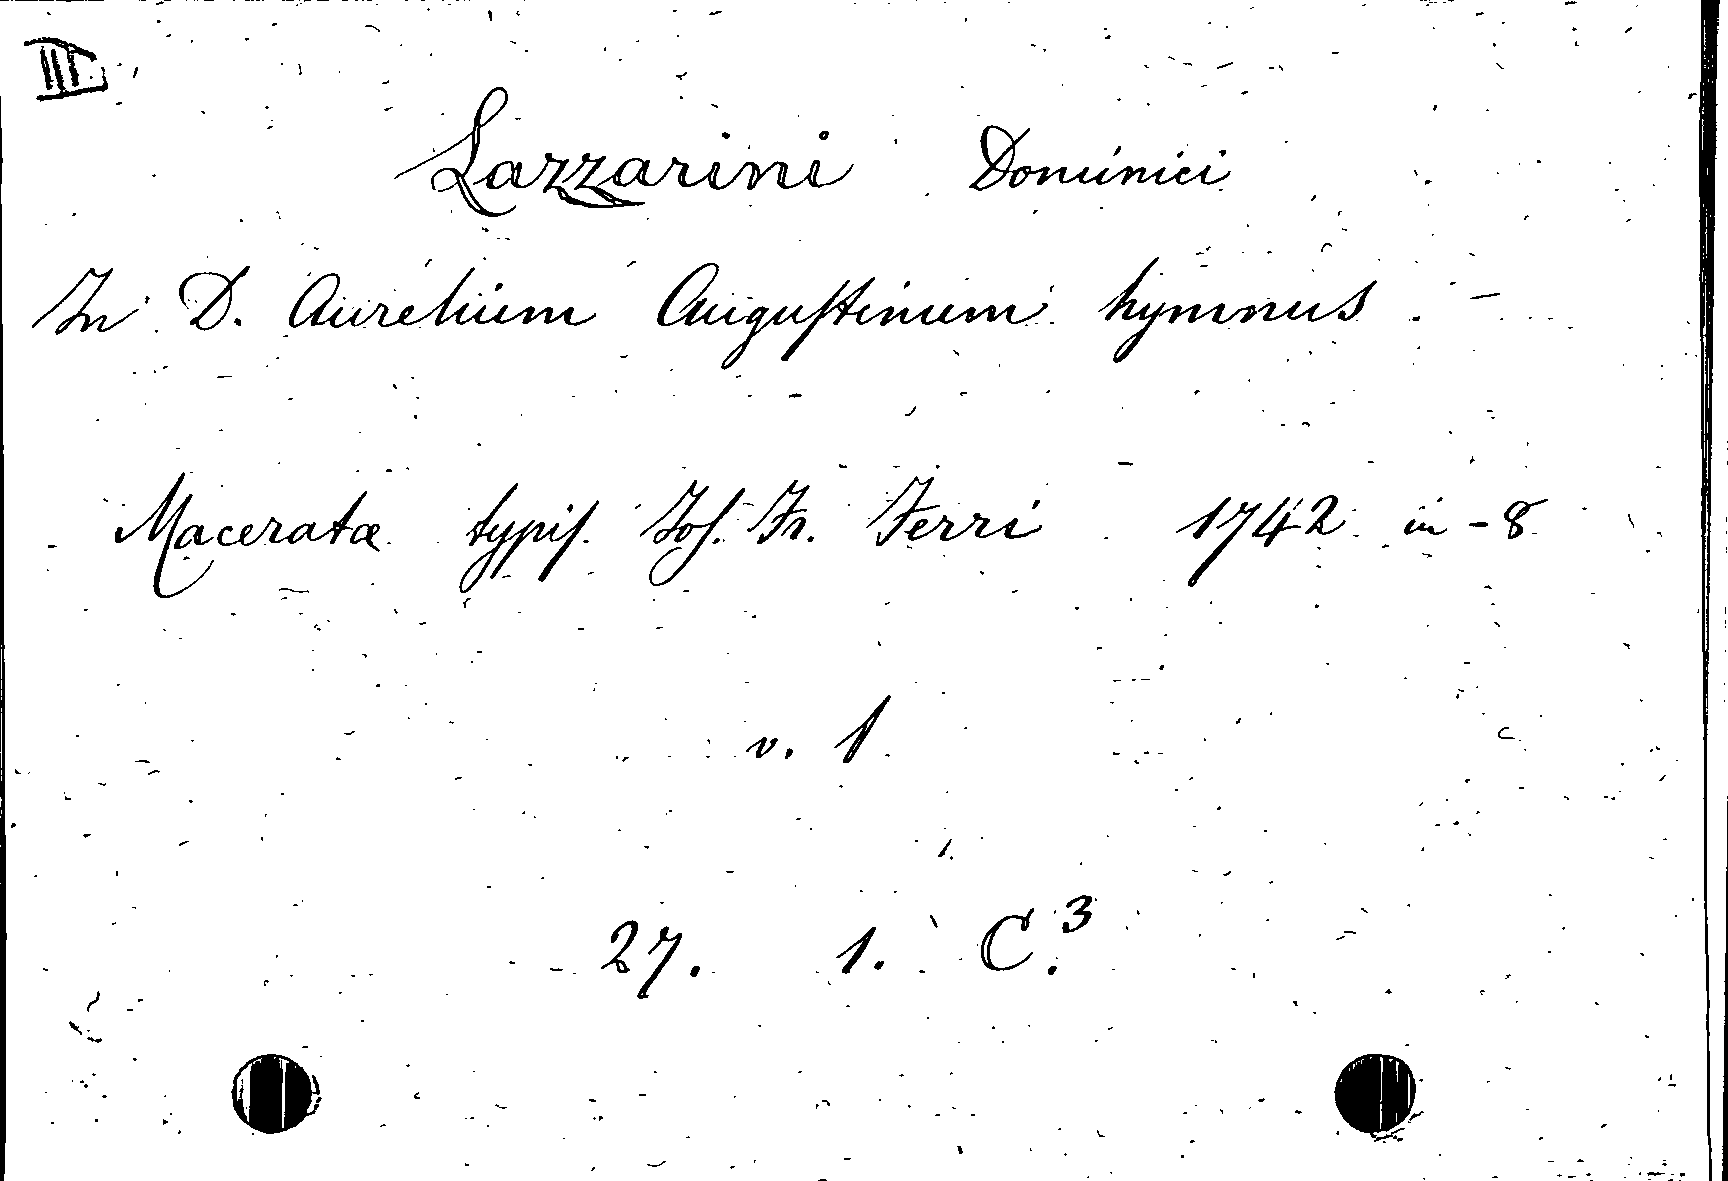 III
Lazzarini Dominici
In D. Aurelium Auguſtinum hymnus. –
Maceratæ typiſ. Joſ. Fr. Ferri 1742 in-8
v. 1
27. 1. C.³